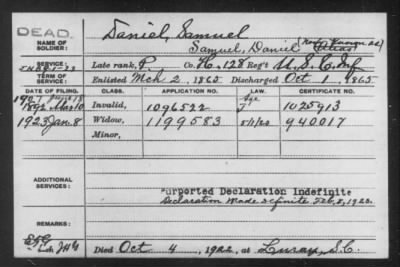 DEAD.
Daniel, Samuel
NAME OF SOLDIER:
Samuel, Daniel (now known as) (Alias)
SERVICE:
Late rank, P Co. H, 128 Reg't U.S.C. Inf
TERM OF SERVICE:
Enlisted Mch 2, 1865 Discharged Oct 1, 1865
DATE OF FILING. CLASS. APPLICATION NO. LAW. CERTIFICATE NO.
1907 June 18 Age
1892 Mar 10 Invalid, 1096522 J 1025913
1923 Jan. 8 Widow, 1199583 5/1/20 940017
Minor,
ADDITIONAL SERVICES:
Purported Declaration Indefinite
Declaration Made definite Feb. 8, 1923.
REMARKS:
Died Oct 4, 1922, at Luray, S.C.